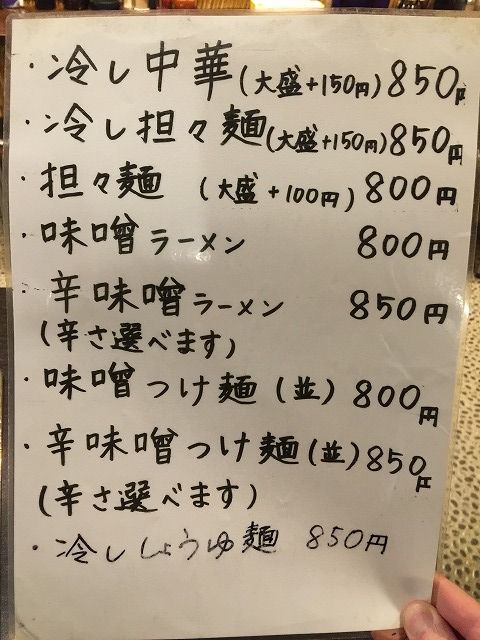 ・冷し中華(大盛+150円)850円
・冷し担々麺(大盛+150円)850円
・担々麺 (大盛+100円)800円
・味噌ラーメン 800円
・辛味噌ラーメン 850円
(辛さ選べます)
・味噌つけ麺(並)800円
・辛味噌つけ麺(並)850円
(辛さ選べます)
・冷ししょうゆ麺 850円